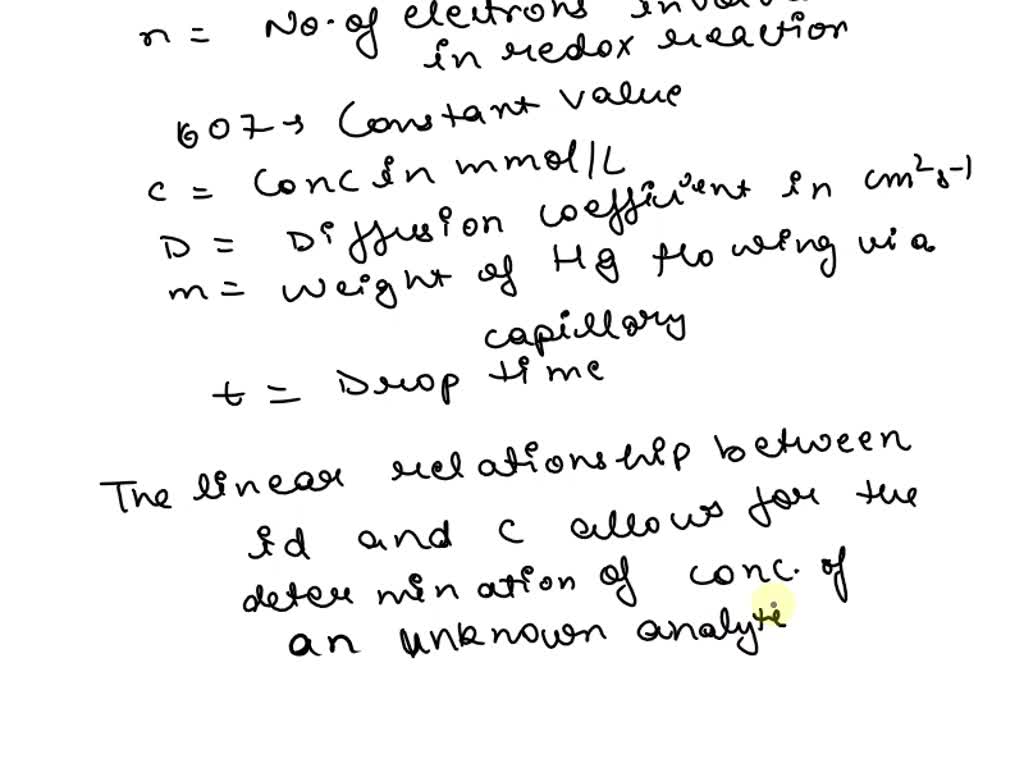 n = No. of electrons
in redox reaction
607 → Constant value
c = Conc in mmol/L
D = Diffusion coefficient in cm²s⁻¹
m = weight of Hg flowing via
capillary
t = Drop time
The linear relationship between
id and c allows for the
determination of conc. of
an unknown analyte